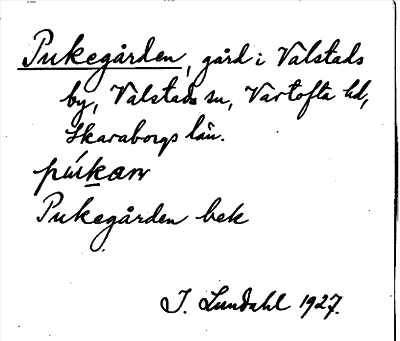 Pukegården, gård i Valstads
by, Valstads sn, Vartofta hd,
Skaraborgs län.
púkan
Pukegården bek
I. Lundahl 1927.